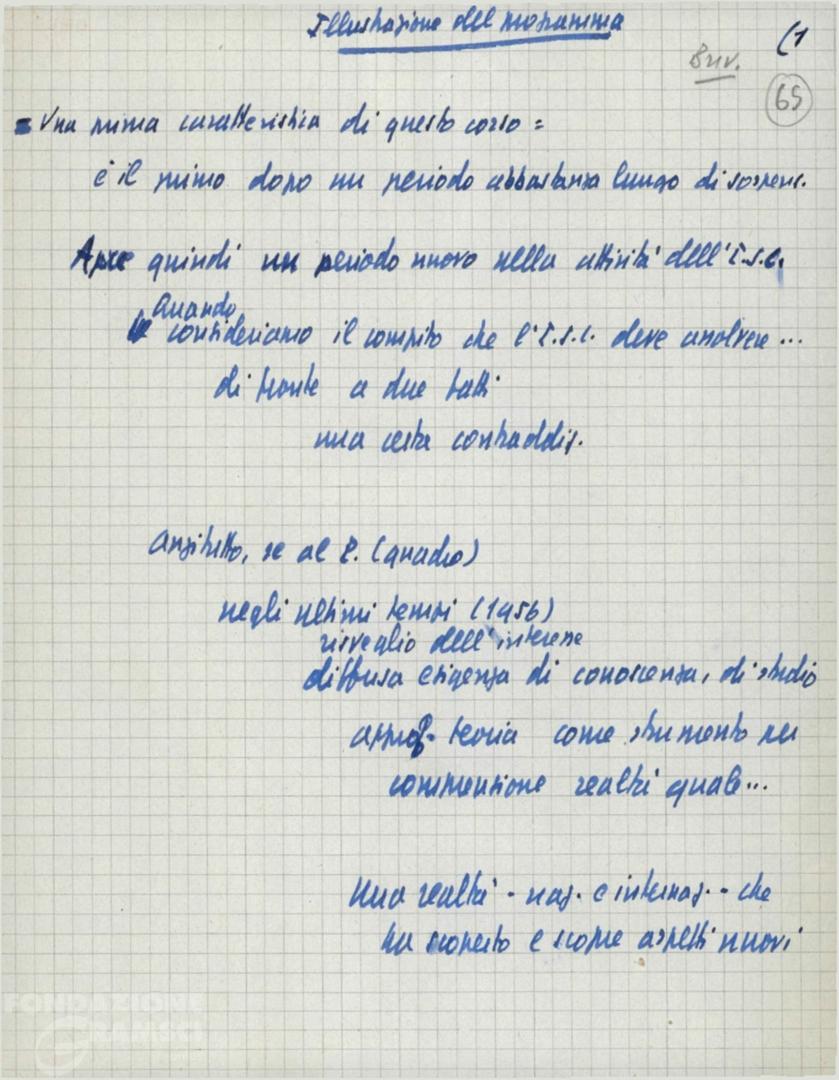 Illustrazione del programma
(1
Briv.
65
= Una prima caratteristica di questo corso =
è il primo dopo un periodo abbastanza lungo di sospens.
Apre quindi un periodo nuovo nella attività dell'I.S.C.
Quando
consideriamo il compito che l'I.S.C. deve assolvere...
di fronte a due fatti
una certa contraddiz.
Anzitutto, se al P. (quadro)
negli ultimi tempi (1956)
risveglio dell'interesse
diffusa esigenza di conoscenza, di studio
approf. teoria come strumento per
comprensione realtà quale...
Una realtà - naz. e internaz. - che
ha scoperto e scopre aspetti nuovi
FONDAZIONE
GRAMSCI